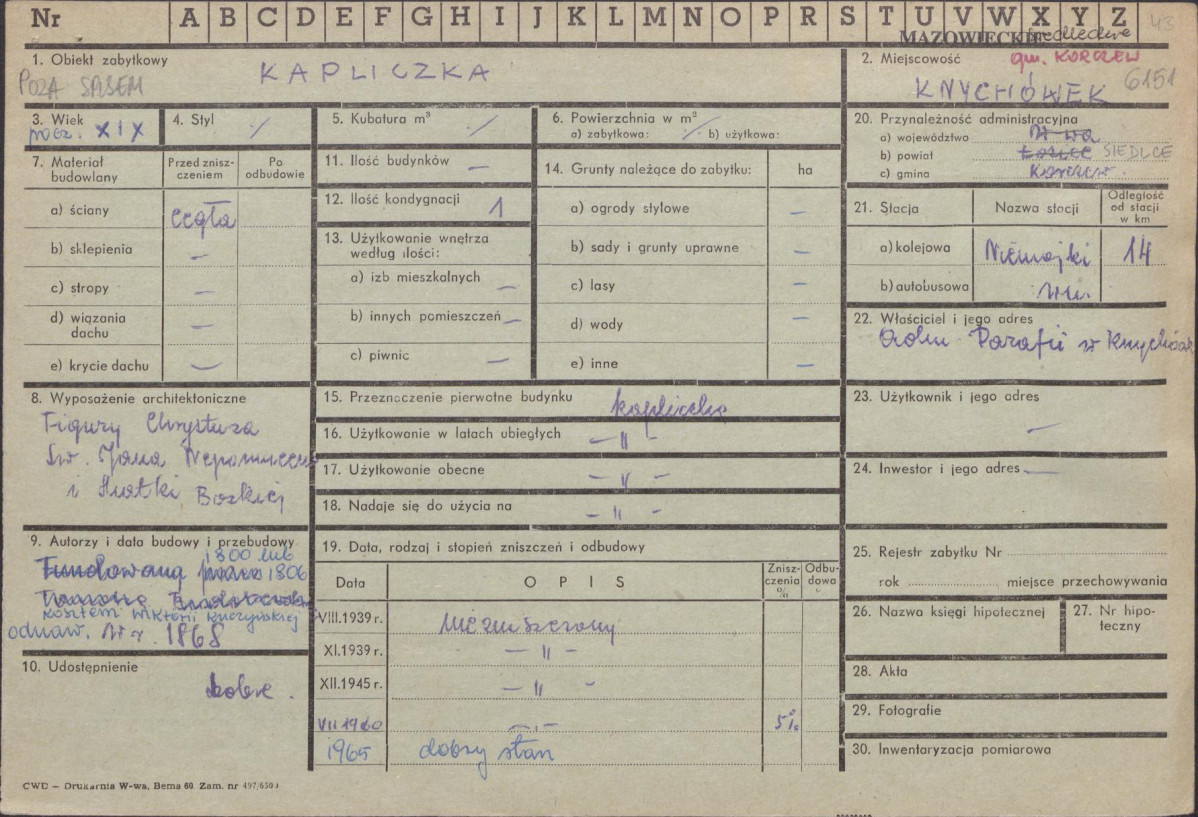 Nr A B C D E F G H I J K L M N O P R S T U V W X Y Z 43
MAZOWIECKIE siedleckie
1. Obiekt zabytkowy
KAPLICZKA
POZA SPISEM
2. Miejscowość gm. KORCZEW
KNYCHÓWEK 6151
3. Wiek
pocz. XIX
4. Styl /
5. Kubatura m³ /
6. Powierzchnia w m²
a) zabytkowa: / b) użytkowa:
7. Materiał budowlany
Przed znisz-
czeniem
Po
odbudowie
a) ściany cegła
b) sklepienia —
c) stropy —
d) wiązania
dachu —
e) krycie dachu —
11. Ilość budynków —
12. Ilość kondygnacji 1
13. Użytkowanie wnętrza
według ilości:
a) izb mieszkalnych —
b) innych pomieszczeń —
c) piwnic —
14. Grunty należące do zabytku: ha
a) ogrody stylowe —
b) sady i grunty uprawne —
c) lasy —
d) wody —
e) inne —
20. Przynależność administracyjna
a) województwo W-wa
b) powiat Łosice SIEDLCE
c) gmina Korczew
21. Stacja
Nazwa stacji
Odległość
od stacji
w km
a) kolejowa Niemojki 14
b) autobusowa
22. Właściciel i jego adres
Parafii w
23. Użytkownik i jego adres
—
24. Inwestor i jego adres —
8. Wyposażenie architektoniczne
Figury Chrystusa
Św. Jana Nepomucena
i Matki Boskiej
15. Przeznaczenie pierwotne budynku kapliczka
16. Użytkowanie w latach ubiegłych — " —
17. Użytkowanie obecne — " —
18. Nadaje się do użycia na — " —
9. Autorzy i data budowy i przebudowy
1800 lub
Fundowana przez 1806
kosztem Wiktorii Kuczyńskiej
odnaw. w r. 1868
10. Udostępnienie
dobre.
19. Data, rodzaj i stopień zniszczeń i odbudowy
Data OPIS
Znisz-
czenia
%
Odbu-
dowa
VIII.1939 r. nie zniszczony
XI.1939 r. — " —
XII.1945 r. — " —
VII 1960 — " — 5%
1965 dobry stan
25. Rejestr zabytku Nr
rok miejsce przechowywania
26. Nazwa księgi hipotecznej
27. Nr hipo-
teczny
28. Akta
29. Fotografie
30. Inwentaryzacja pomiarowa
CWD — Drukarnia W-wa, Bema 60. Zam. nr 497/650